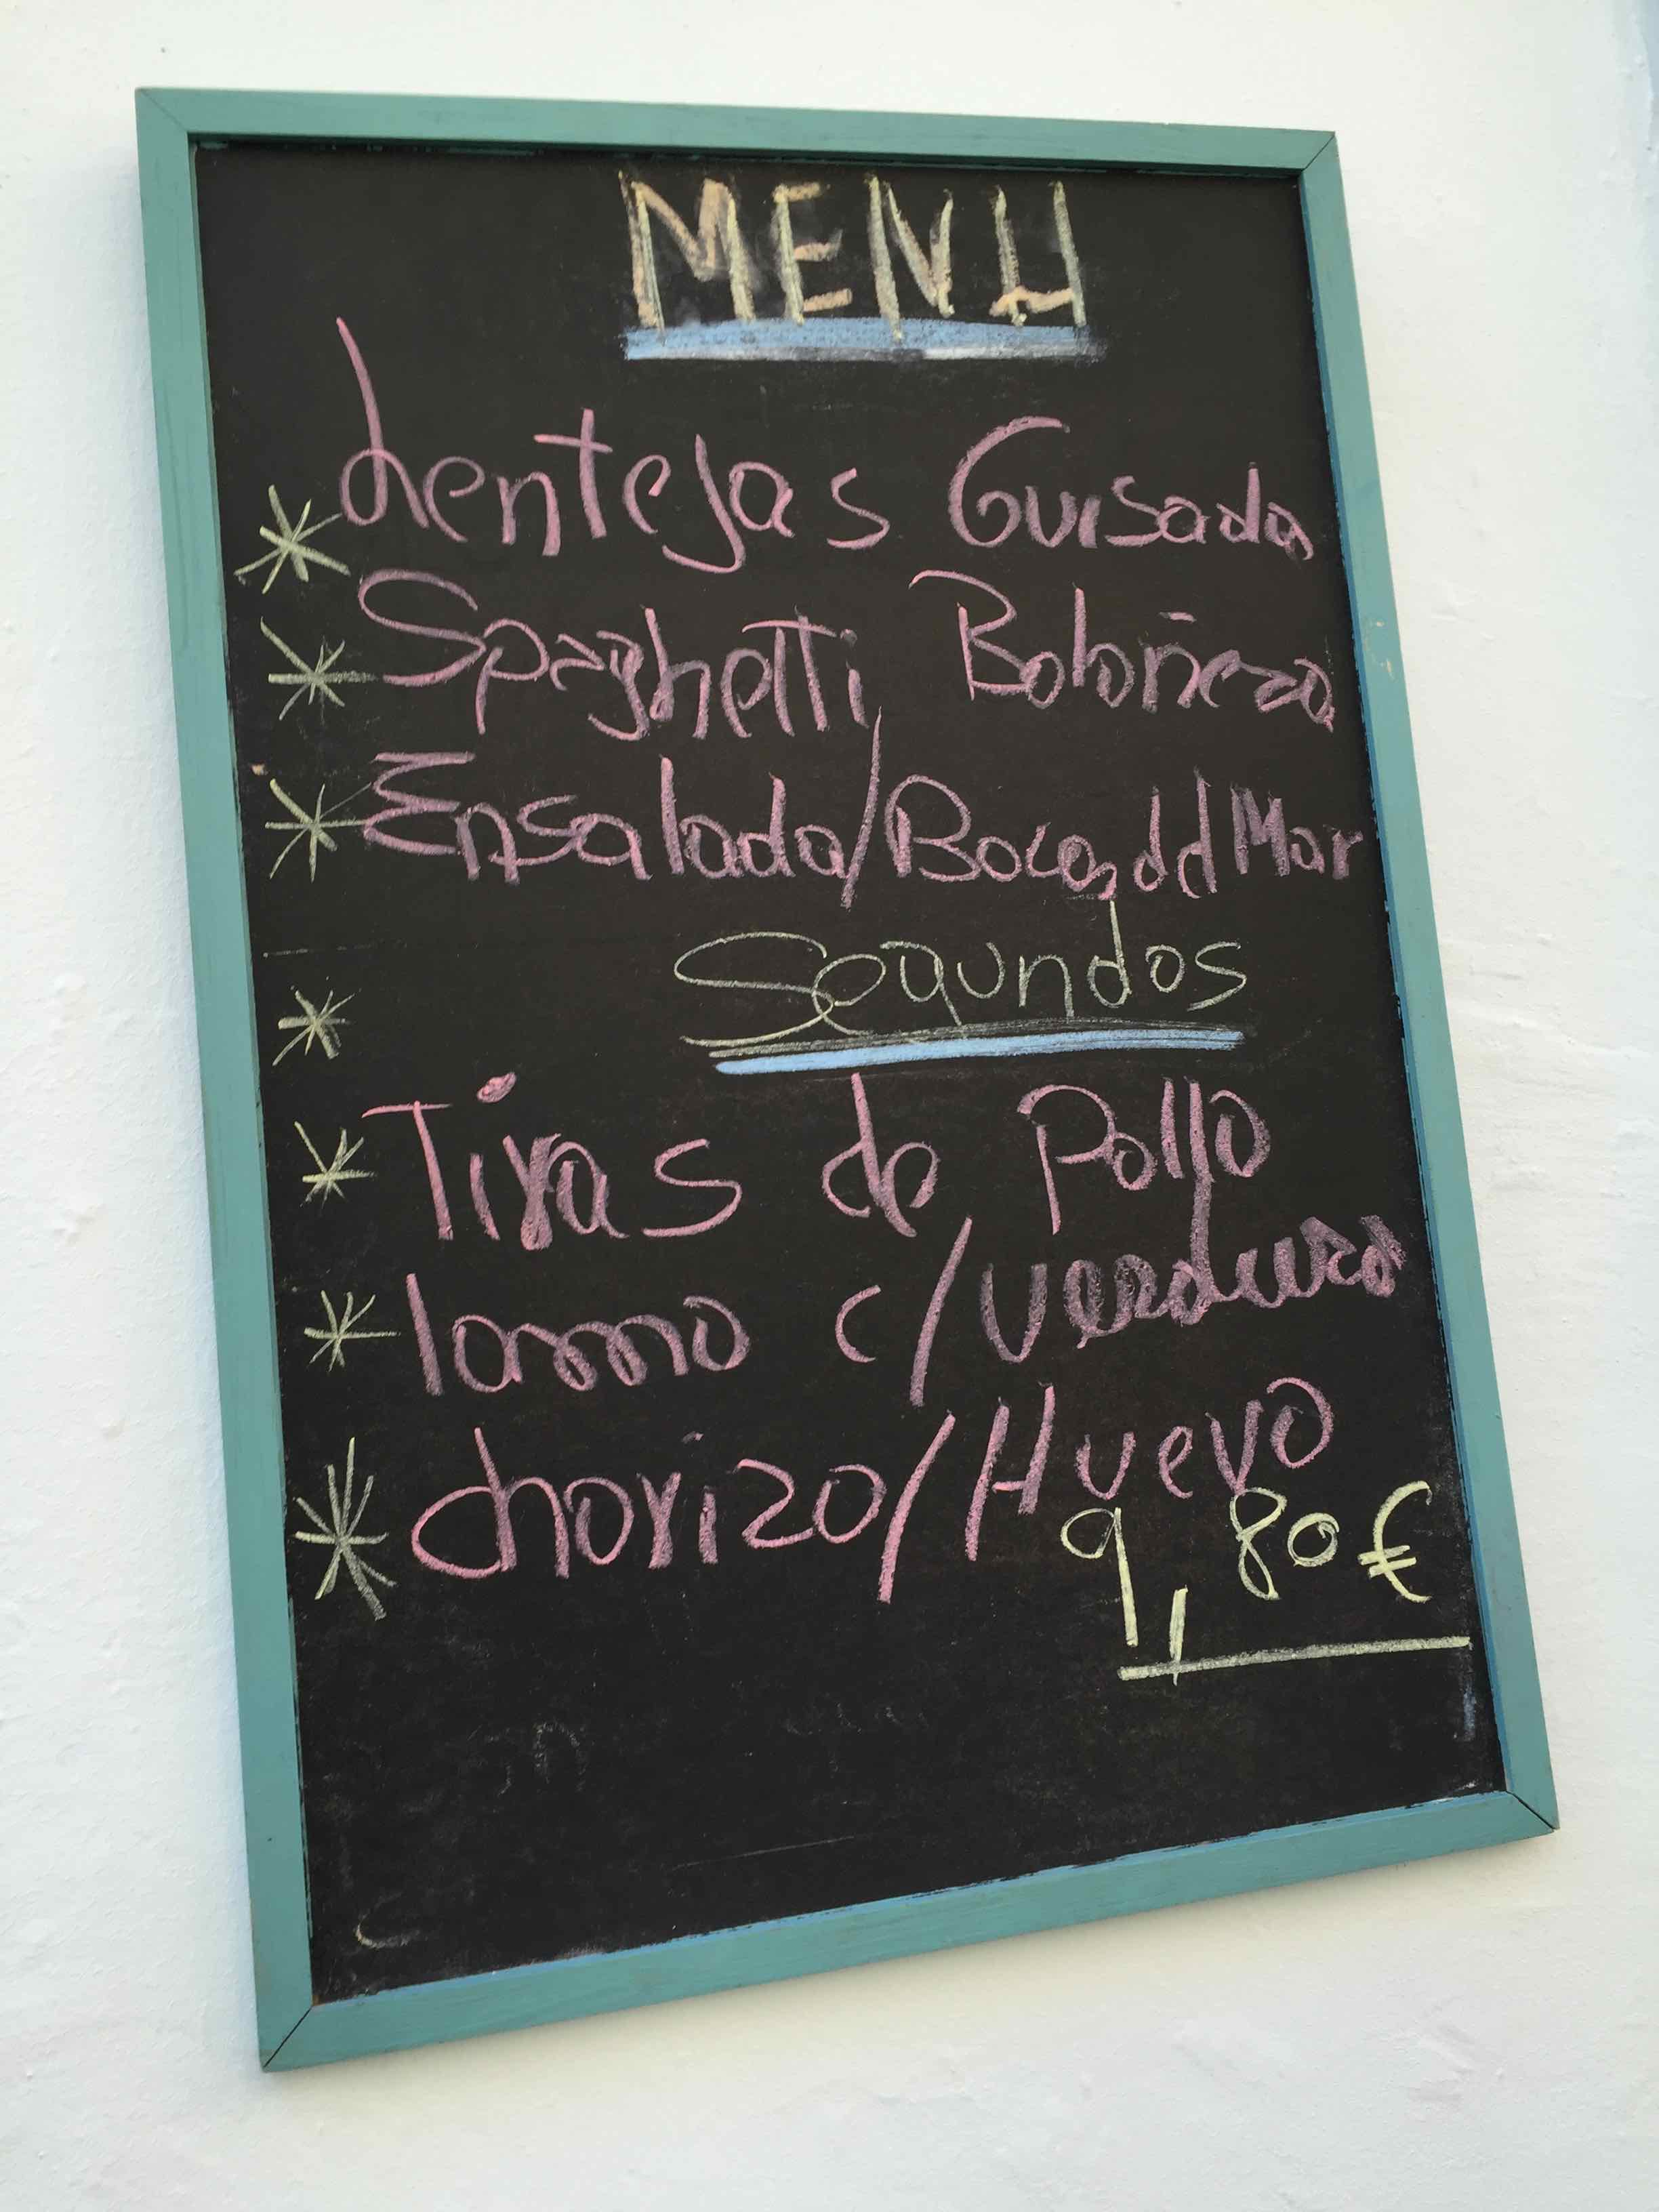 MENU
* Lentejas Guisadas
* Spaghetti Boloñeza
* Ensalada/Bocas del Mar
Segundos
*
* Tiras de Pollo
* lomo c/verduras
* chorizo/Huevo
9,80€